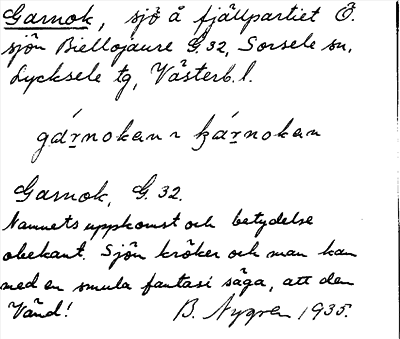 Garnok, sjö å fjällpartiet Ö.
sjön Biellojaure G.32, Sorsele sn,
Lycksele tg, Västerb. l.
gárnokan ~ ḱárnokan
Garnok, G. 32.
Namnets uppkomst och betydelse
obekant. Sjön kröker och man kan
med en smula fantasi säga, att den
Vänd!
B. Nygren 1935.